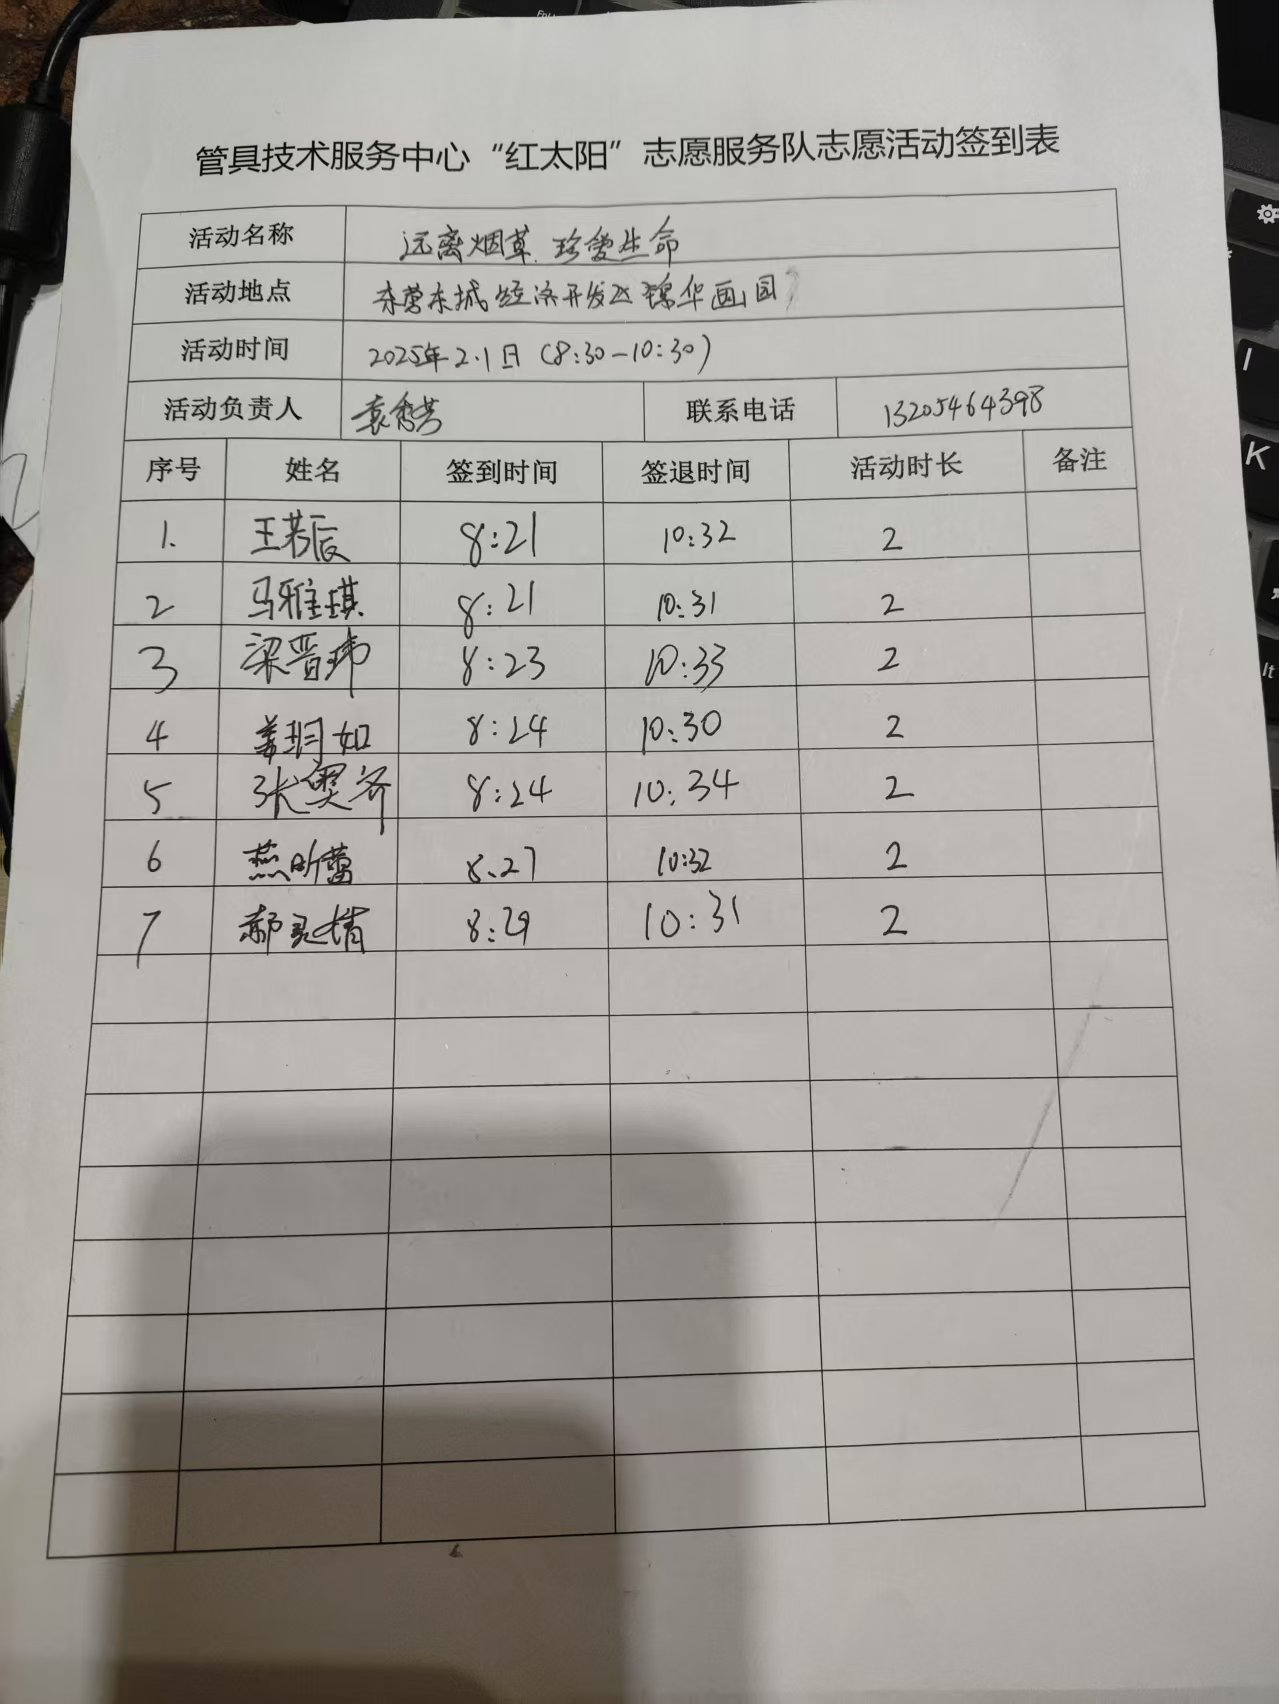 管具技术服务中心“红太阳”志愿服务队志愿活动签到表
活动名称 远离烟草.珍爱生命
活动地点 东营东城经济开发区锦华画园
活动时间 2025年2.1日(8:30-10:30)
活动负责人 袁秀芸 联系电话 13205464398
序号 姓名 签到时间 签退时间 活动时长 备注
1. 王若辰 8:21 10:32 2
2 马雅琪 8:21 10:31 2
3 梁晋玮 8:23 10:33 2
4 姜玥如 8:24 10:30 2
5 张奥齐 8:24 10:34 2
6 燕昕蕾 8.27 10:32 2
7 郝灵婧 8:29 10:31 2